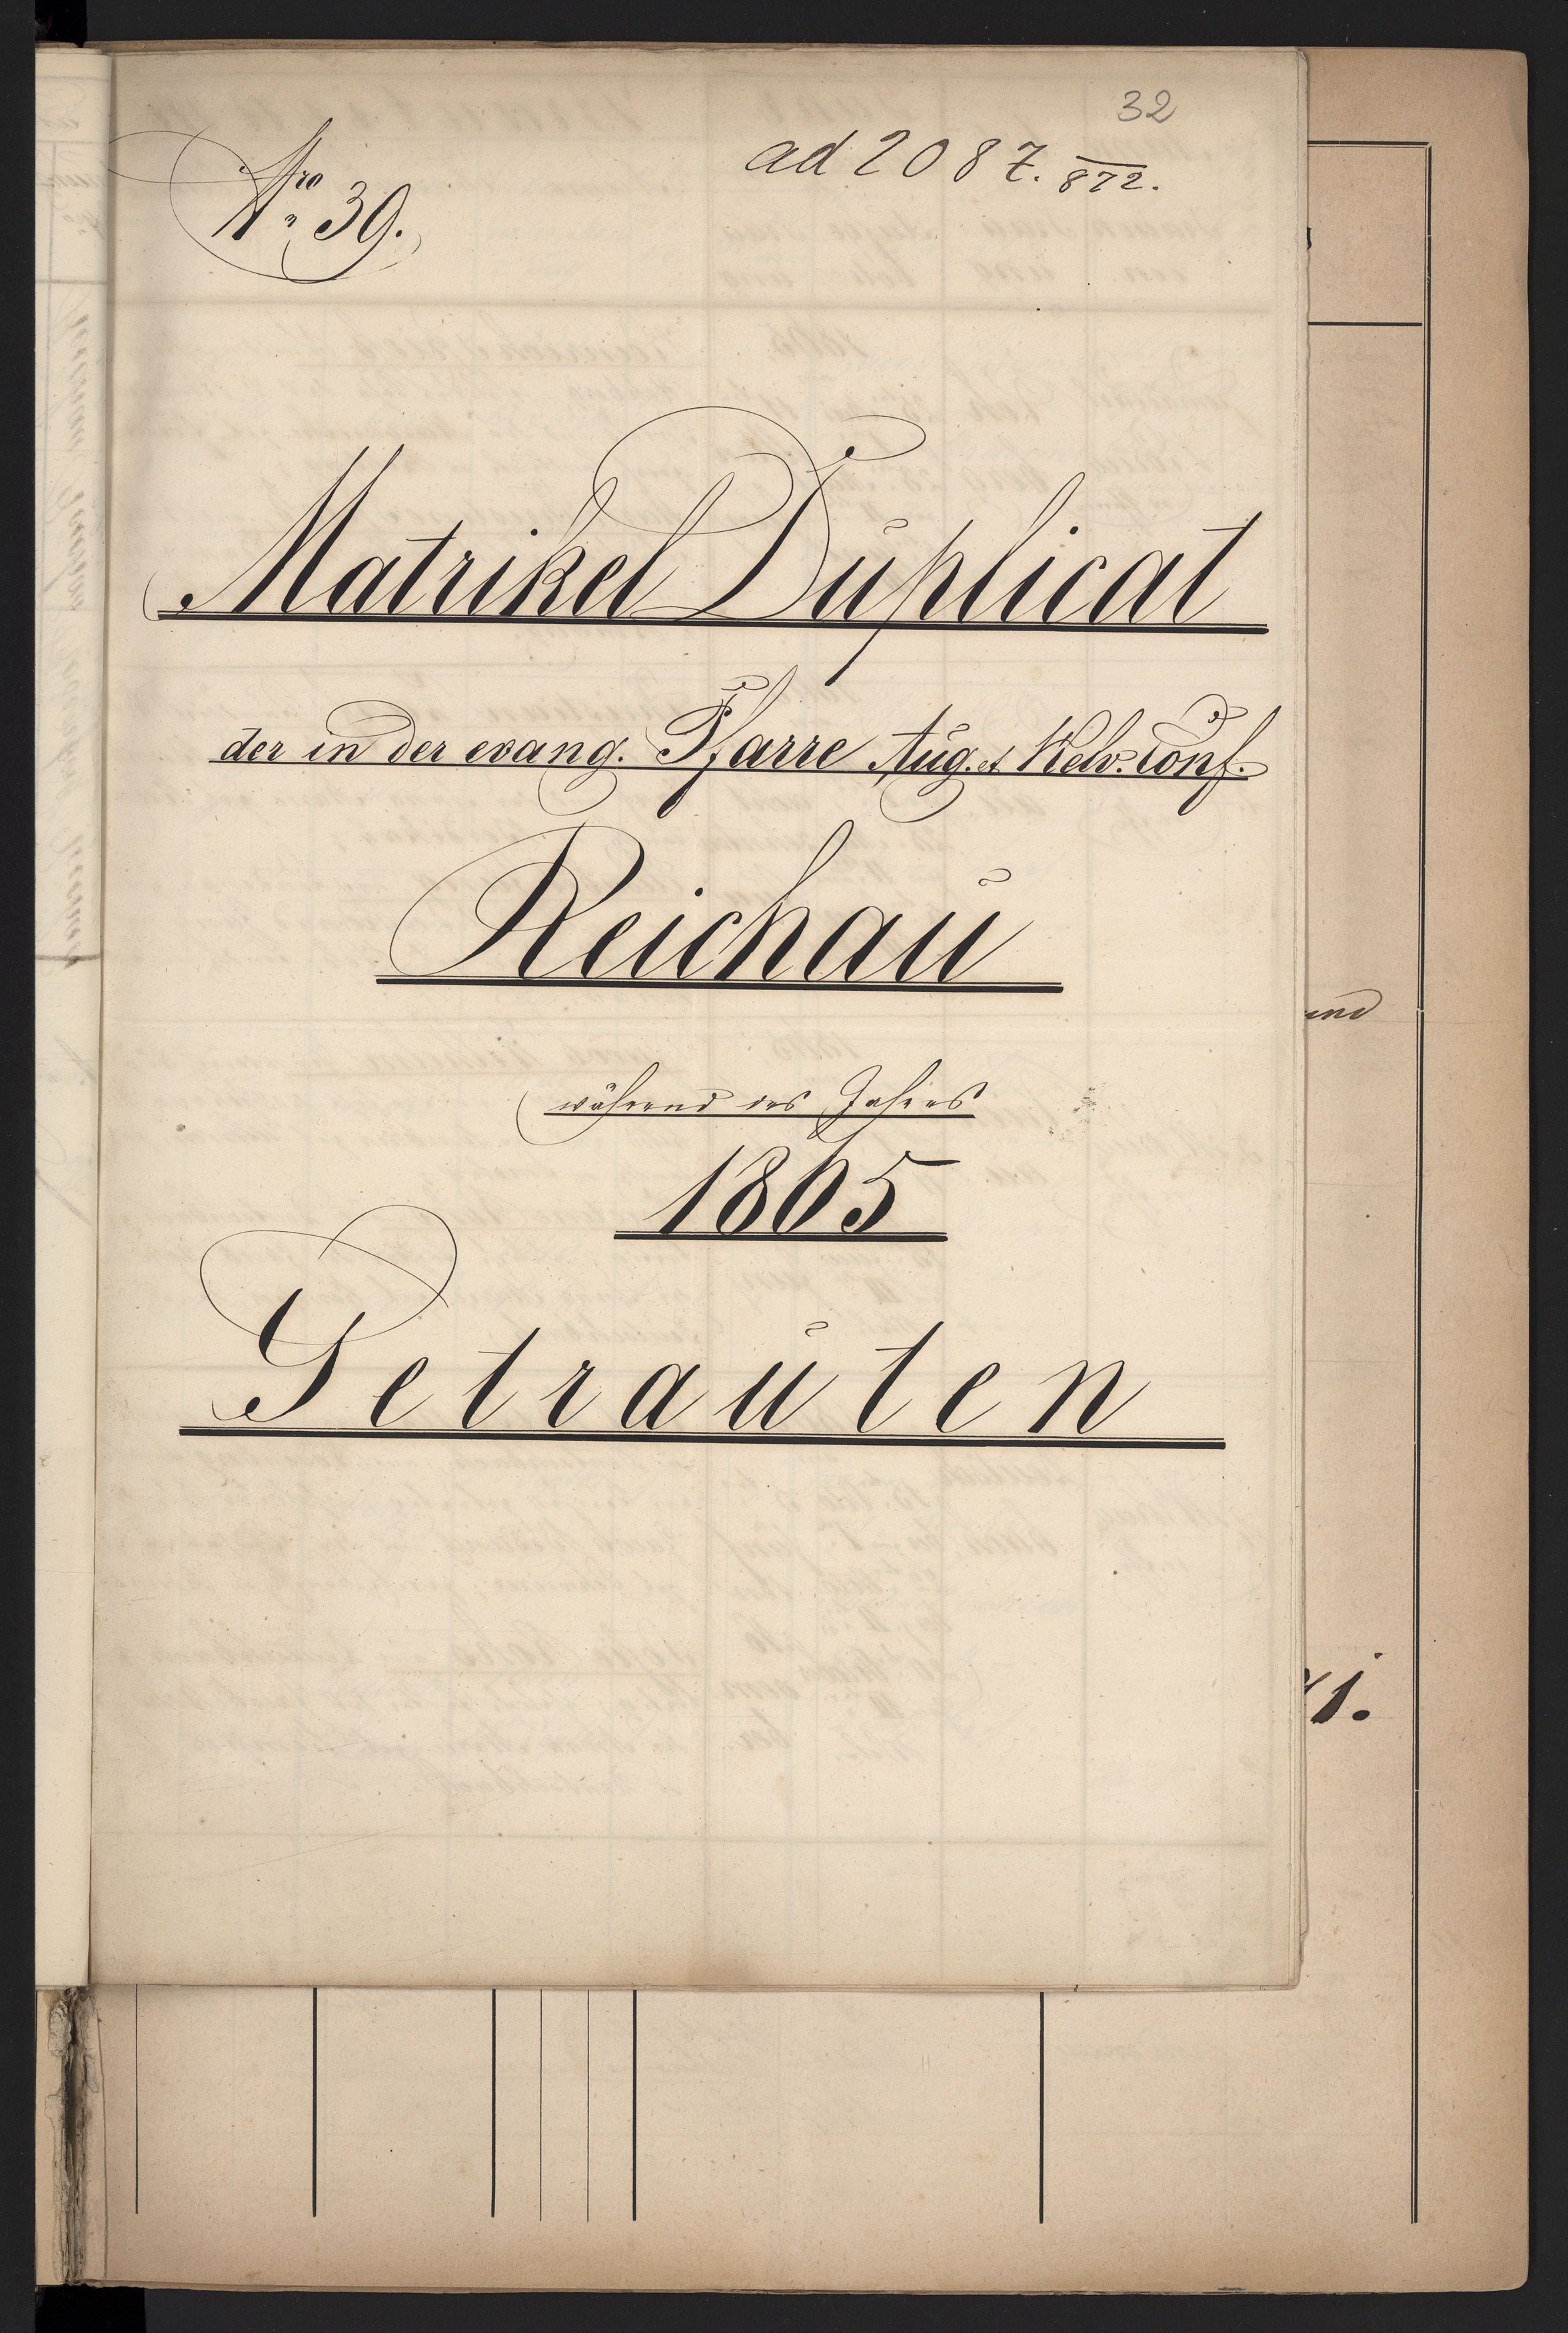 32
ad 2087. 872.
Nro 39.
Matrikel Duplicat
der in der evang. Pfarre Aug. et Helv. Conf.
Reichau
während des Jahres
1865
Getrauten
und
1.